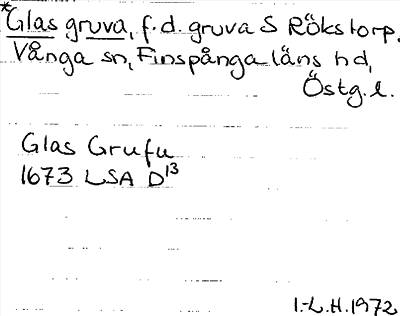 *Glas gruva, f.d. gruva S Rökstorp.
Vånga sn, Finspånga läns hd,
Östg.l.
Glas Grufu
1673 LSA D13
I.-L.H.1972